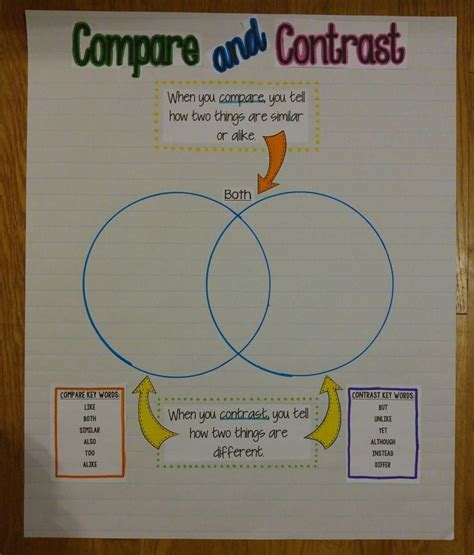 Compare and Contrast
When you compare, you tell
how two things are similar
or alike.
Both
When you contrast, you tell
how two things are
different.
COMPARE KEY WORDS:
LIKE
BOTH
SIMILAR
ALSO
TOO
ALIKE
CONTRAST KEY WORDS:
BUT
UNLIKE
YET
ALTHOUGH
INSTEAD
DIFFER